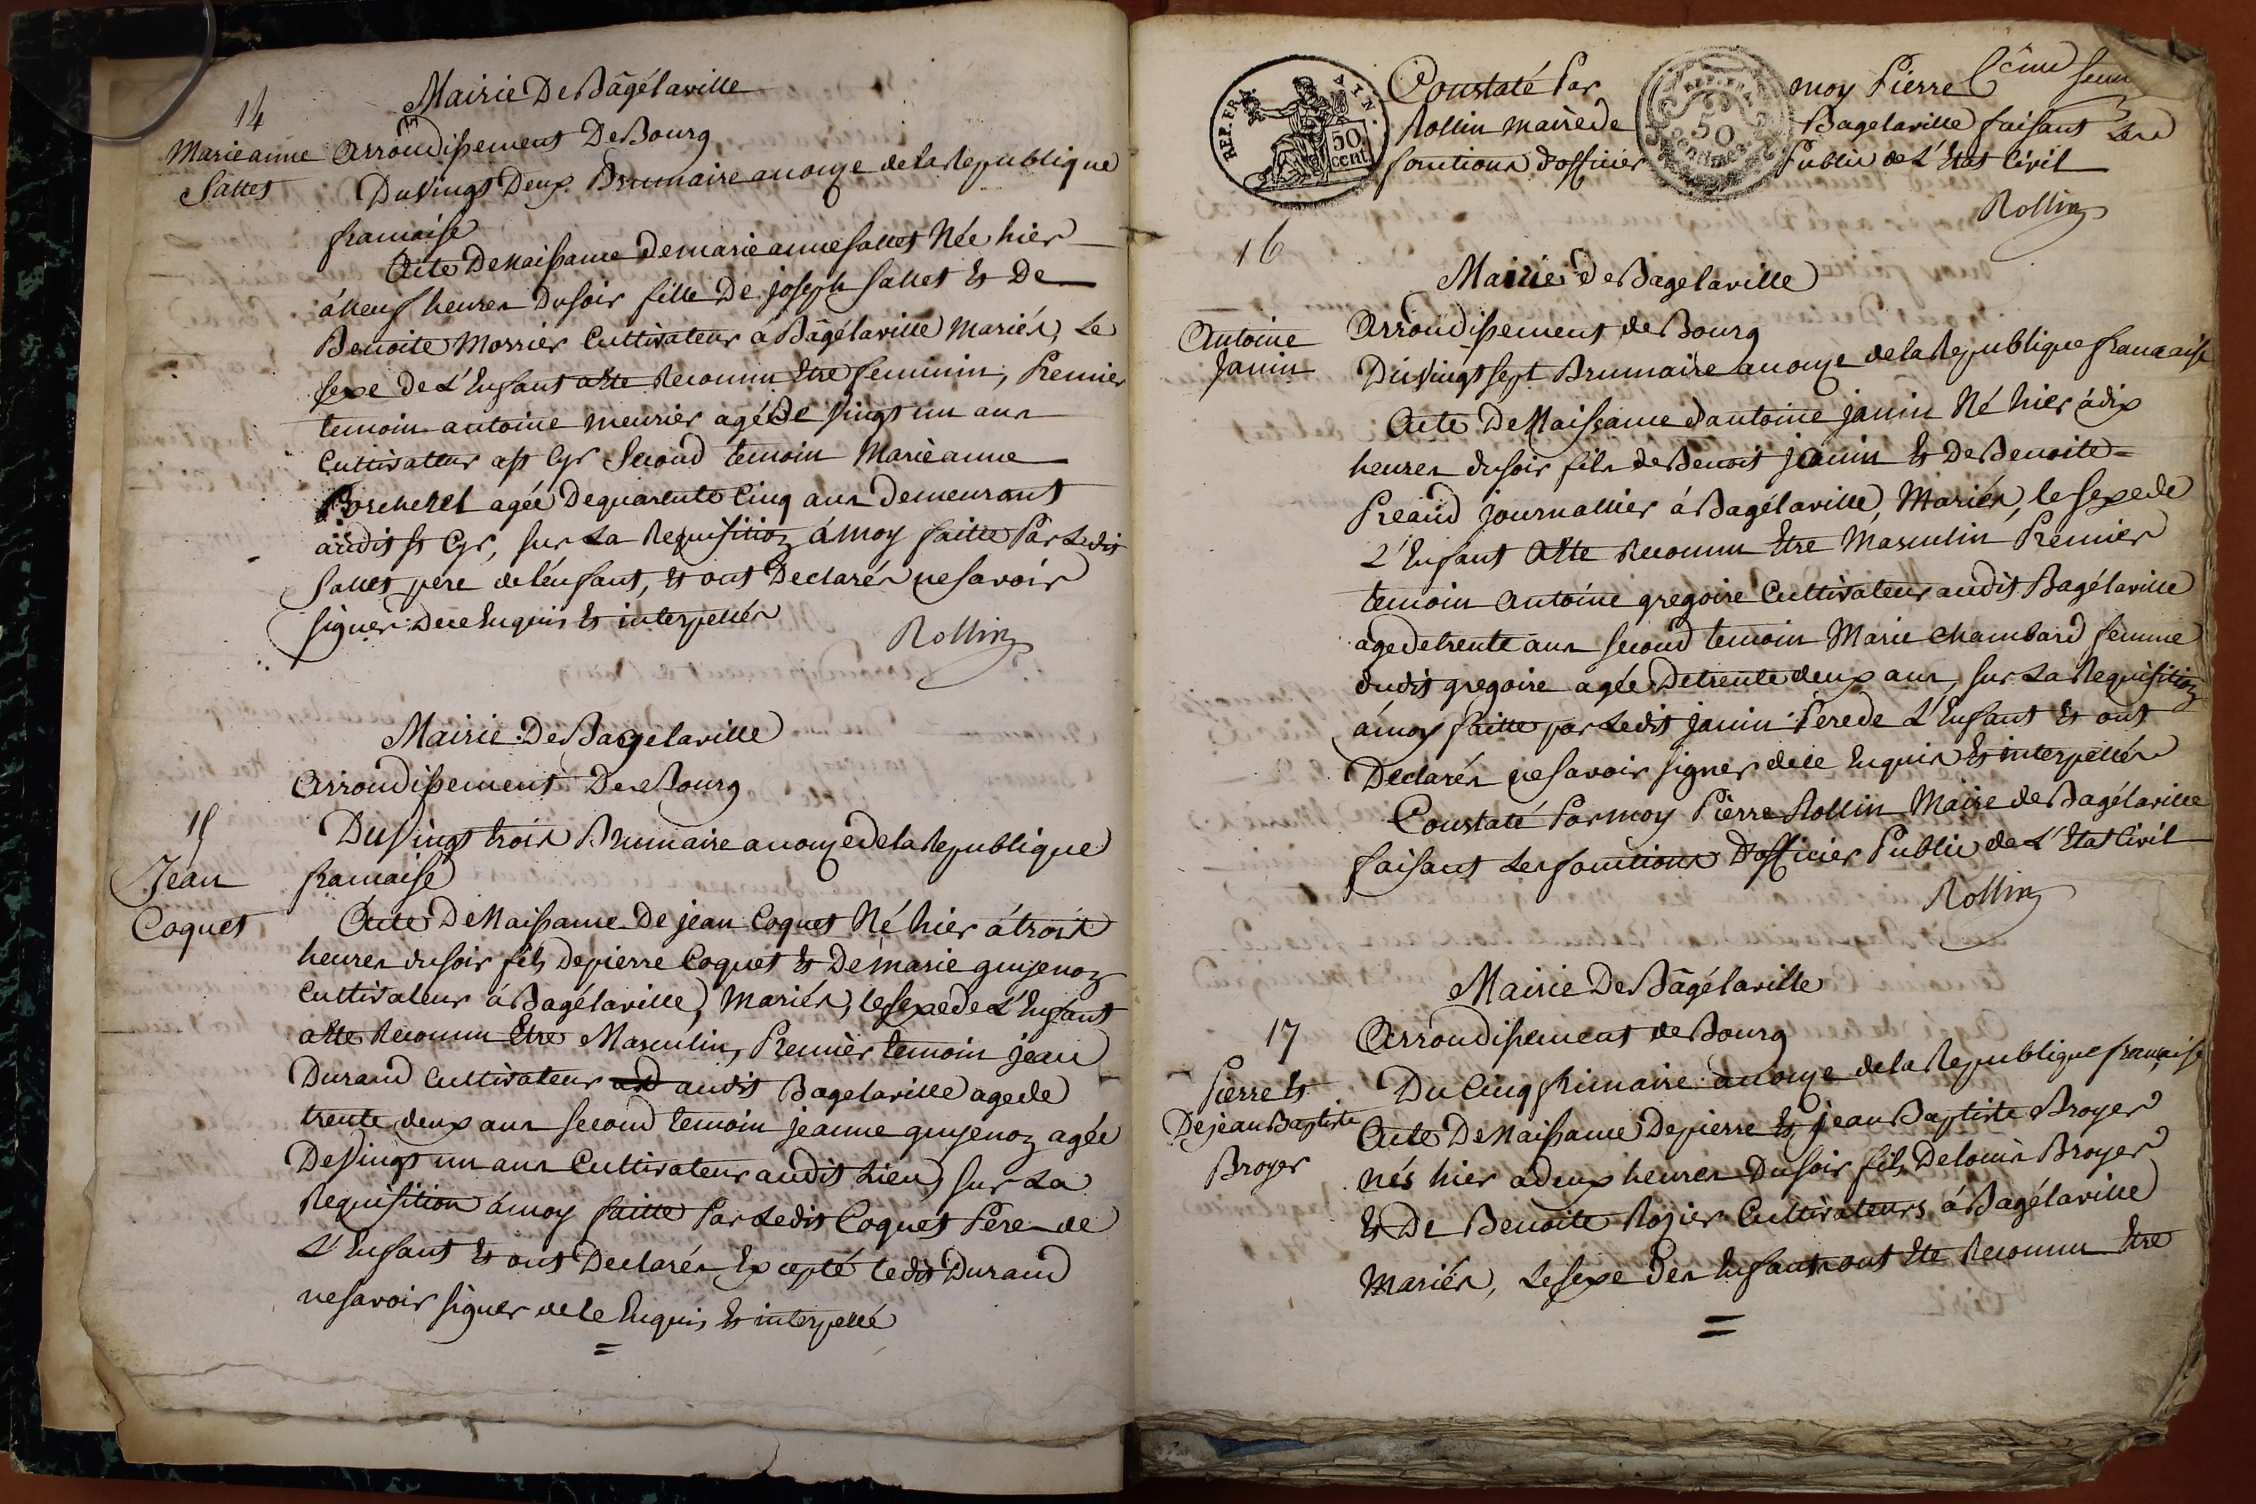 14
Mairie De Bâgélaville
Marie anne
Sallet
Arrondissement De Bourg
Du Vingt Deux Brumaire an onze de la Republique
francaise
Acte De Naissance de marie anne Sallet Née hier
à Neuf heures du soir fille De joseph Sallet Et De
Benoite Morrier Cultivateur à Bâgélaville Mariés, Le
sexe De L'Enfant a Ete Reconnu Etre feminin, Premier
temoin antoine meurier agé De Vingt un ans
Cultivateur a st Cyr Second temoin Marie anne
agée De quarente Cinq ans Demeurant
audit st Cyr, sur La Requisition à Moy faitte Par Ledit
Sallet pere de l'enfant, Et ont Declarés ne savoir
signer De ce Enquis Et interpellés
Rollin
Mairie De Bagelaville
Arrondissement De Bourg
15
Jean
Coquet
Du Vingt trois Brumaire an onze de la Republique
francaise
Acte De Naissance De jean Coquet Né hier à trois
heures du soir fils De pierre Coquet Et De marie guyenoz
Cultivateur à Bagélaville, Mariés, le sexe de L'Enfant
a Ete Reconnu Etre Masculin, Premier temoin jean
Durand Cultivateur audit Bagelaville age de
trente deux ans second temoin jeanne guyenoz agée
De Vingt un ans Cultivateur audit Lieu, sur La
Requisition à moy faitte Par Ledit Coquet Pere de
L'Enfant Et ont Declarés Excepté ledit Durand
ne savoir signer de le Enquis Et interpellé
=
REP. FRA. AIN.
50
cent.
REP. FRA.
50
centimes
Constaté Par moy Pierre
Rollin maire de Bagelaville faisant Les
fonctions d'officier Public de L'Etat Civil
Rollin
16
Mairie de Bagelaville
Antoine
Janin
Arrondissement de Bourg
Du Vingt sept Brumaire an onze de la Republique francaise
Acte De Naissance d'antoine janin Né hier à dix
heures du soir fils de Benoit janin Et De Benoite =
Preaud journallier à Bagélaville, Mariés, le sexe de
L'Enfant a Ete Reconnu Etre Masculin Premier
temoin Antoine gregoire Cultivateur audit Bagélaville
age de trente ans second temoin Marie Chambard femme
dudit gregoire agée De trente deux ans, sur La Requisition
à moy faitte par Ledit janin Pere de L'Enfant Et ont
Declarés ne savoir signer de ce Enquis Et interpellés
Constaté Par moy Pierre Rollin Maire de Bagélaville
faisant Les fonctions D'officier Public de L'Etat Civil
Rollin
Mairie De Bâgélaville
17
Pierre Et
De jean Baptiste
Broyer
Arrondissement de Bourg
Du Cinq frimaire an onze de la Republique francaise
Acte De Naissance De pierre Et jean Baptiste Broyer
nés hier a deux heures Du soir fils De louis Broyer
Et De Benoite Rozier Cultivateurs à Bagélaville
Mariés, Le sexe Des Enfants ont Ete Reconnu Etre
=